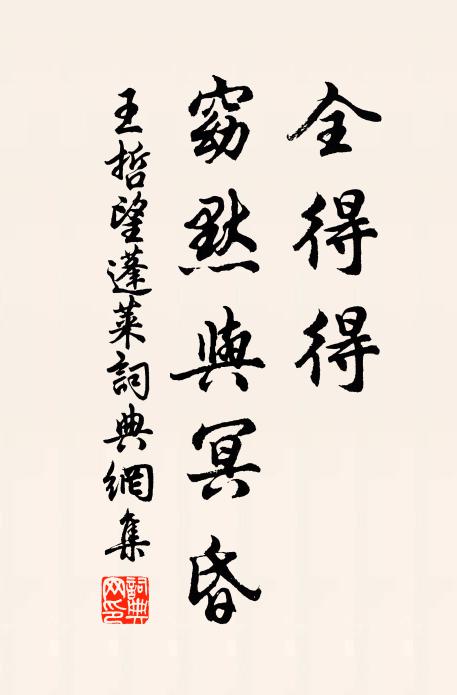 全得得
窈默與冥昏
王哲望蓬萊詞典網集
詞典網印